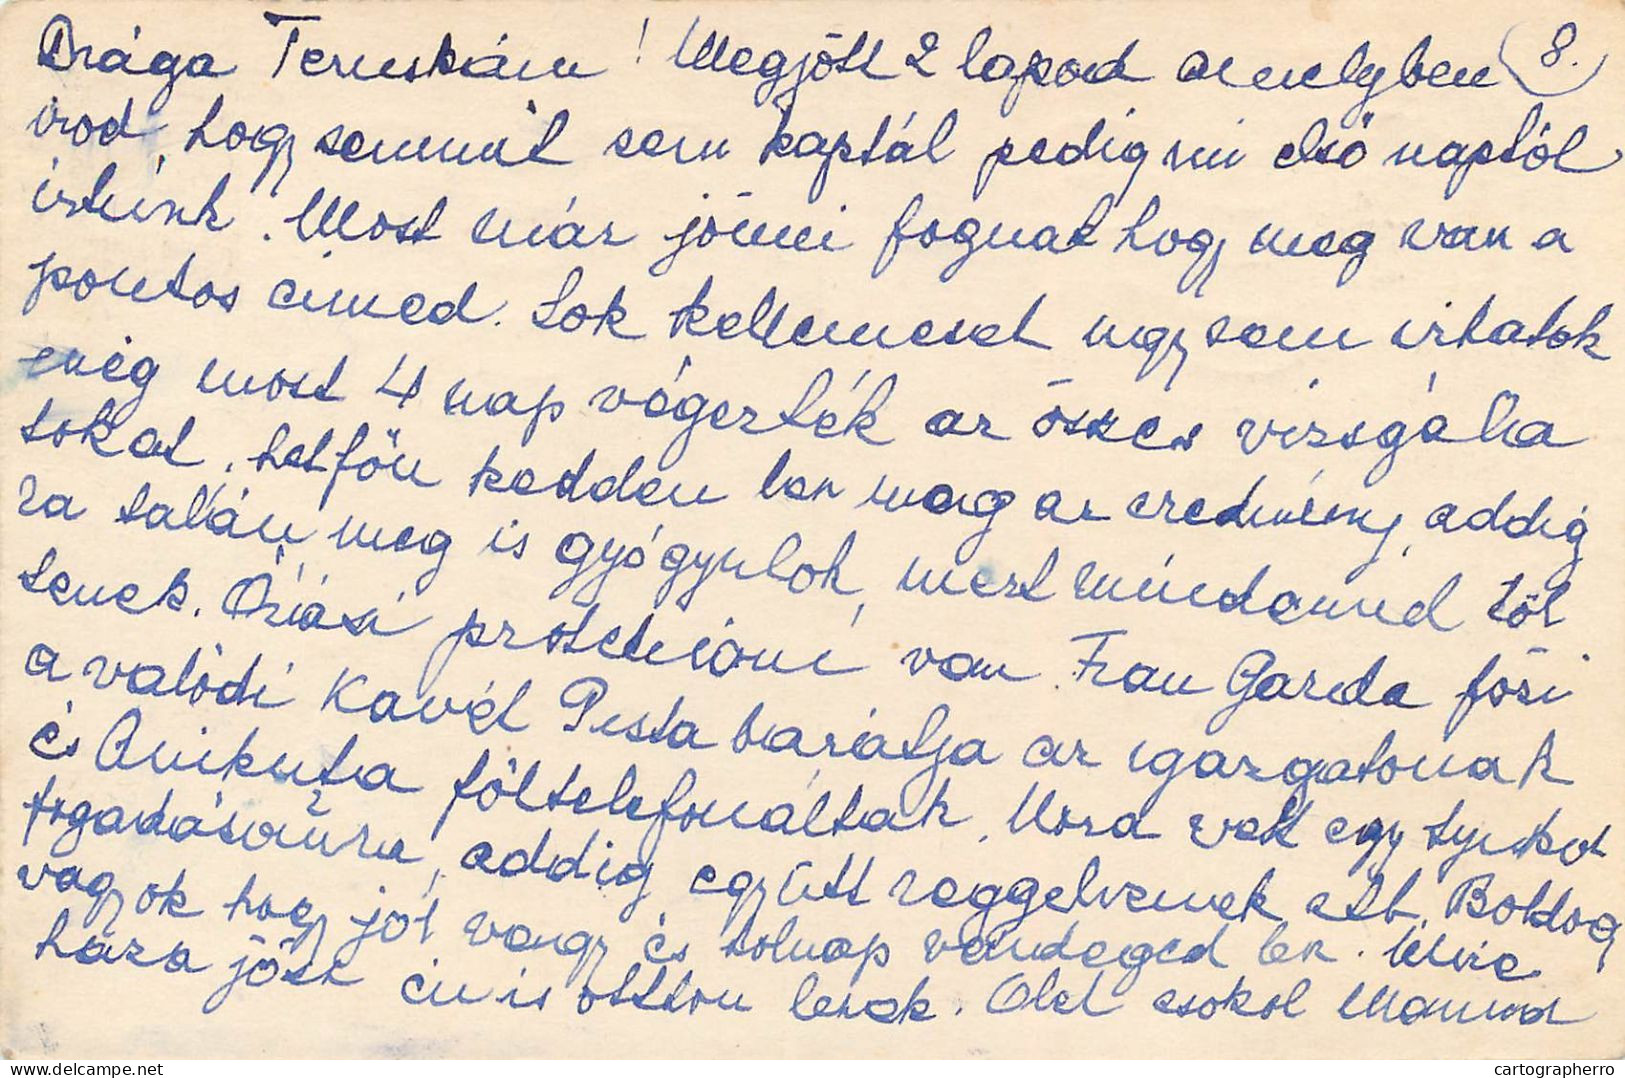 Drága Teruskám! Megjött 2 lapod amelyben 8.
irod, hogy semmit sem kaptál pedig mi elsö naptól
irtunk. Most már jönni fognak hogy meg van a
pontos cimed. Sok kellemeset ugy sem irhatok
még most 4 nap végezték az összes vizsgála
tokat, hetfön kedden lesz meg az eredmény, addig
ra talán meg is gyógyulok, mert mindannyi töl
tenek. Óriási protekcióm van. Frau Garda főzi
a valódi kávét Pista barátja az igazgatonak
és Anikuka föltelefonáltak. Nóra vett egy tyukot
fogadásomra, addig együtt reggelizünk stb. Boldog
vagyok hogy jól vagy és tolnap vendéged lesz. Mire
háza jösz én is otthon leszek. Ölel csokol Mamma
www.delcampe.net
cartographerro